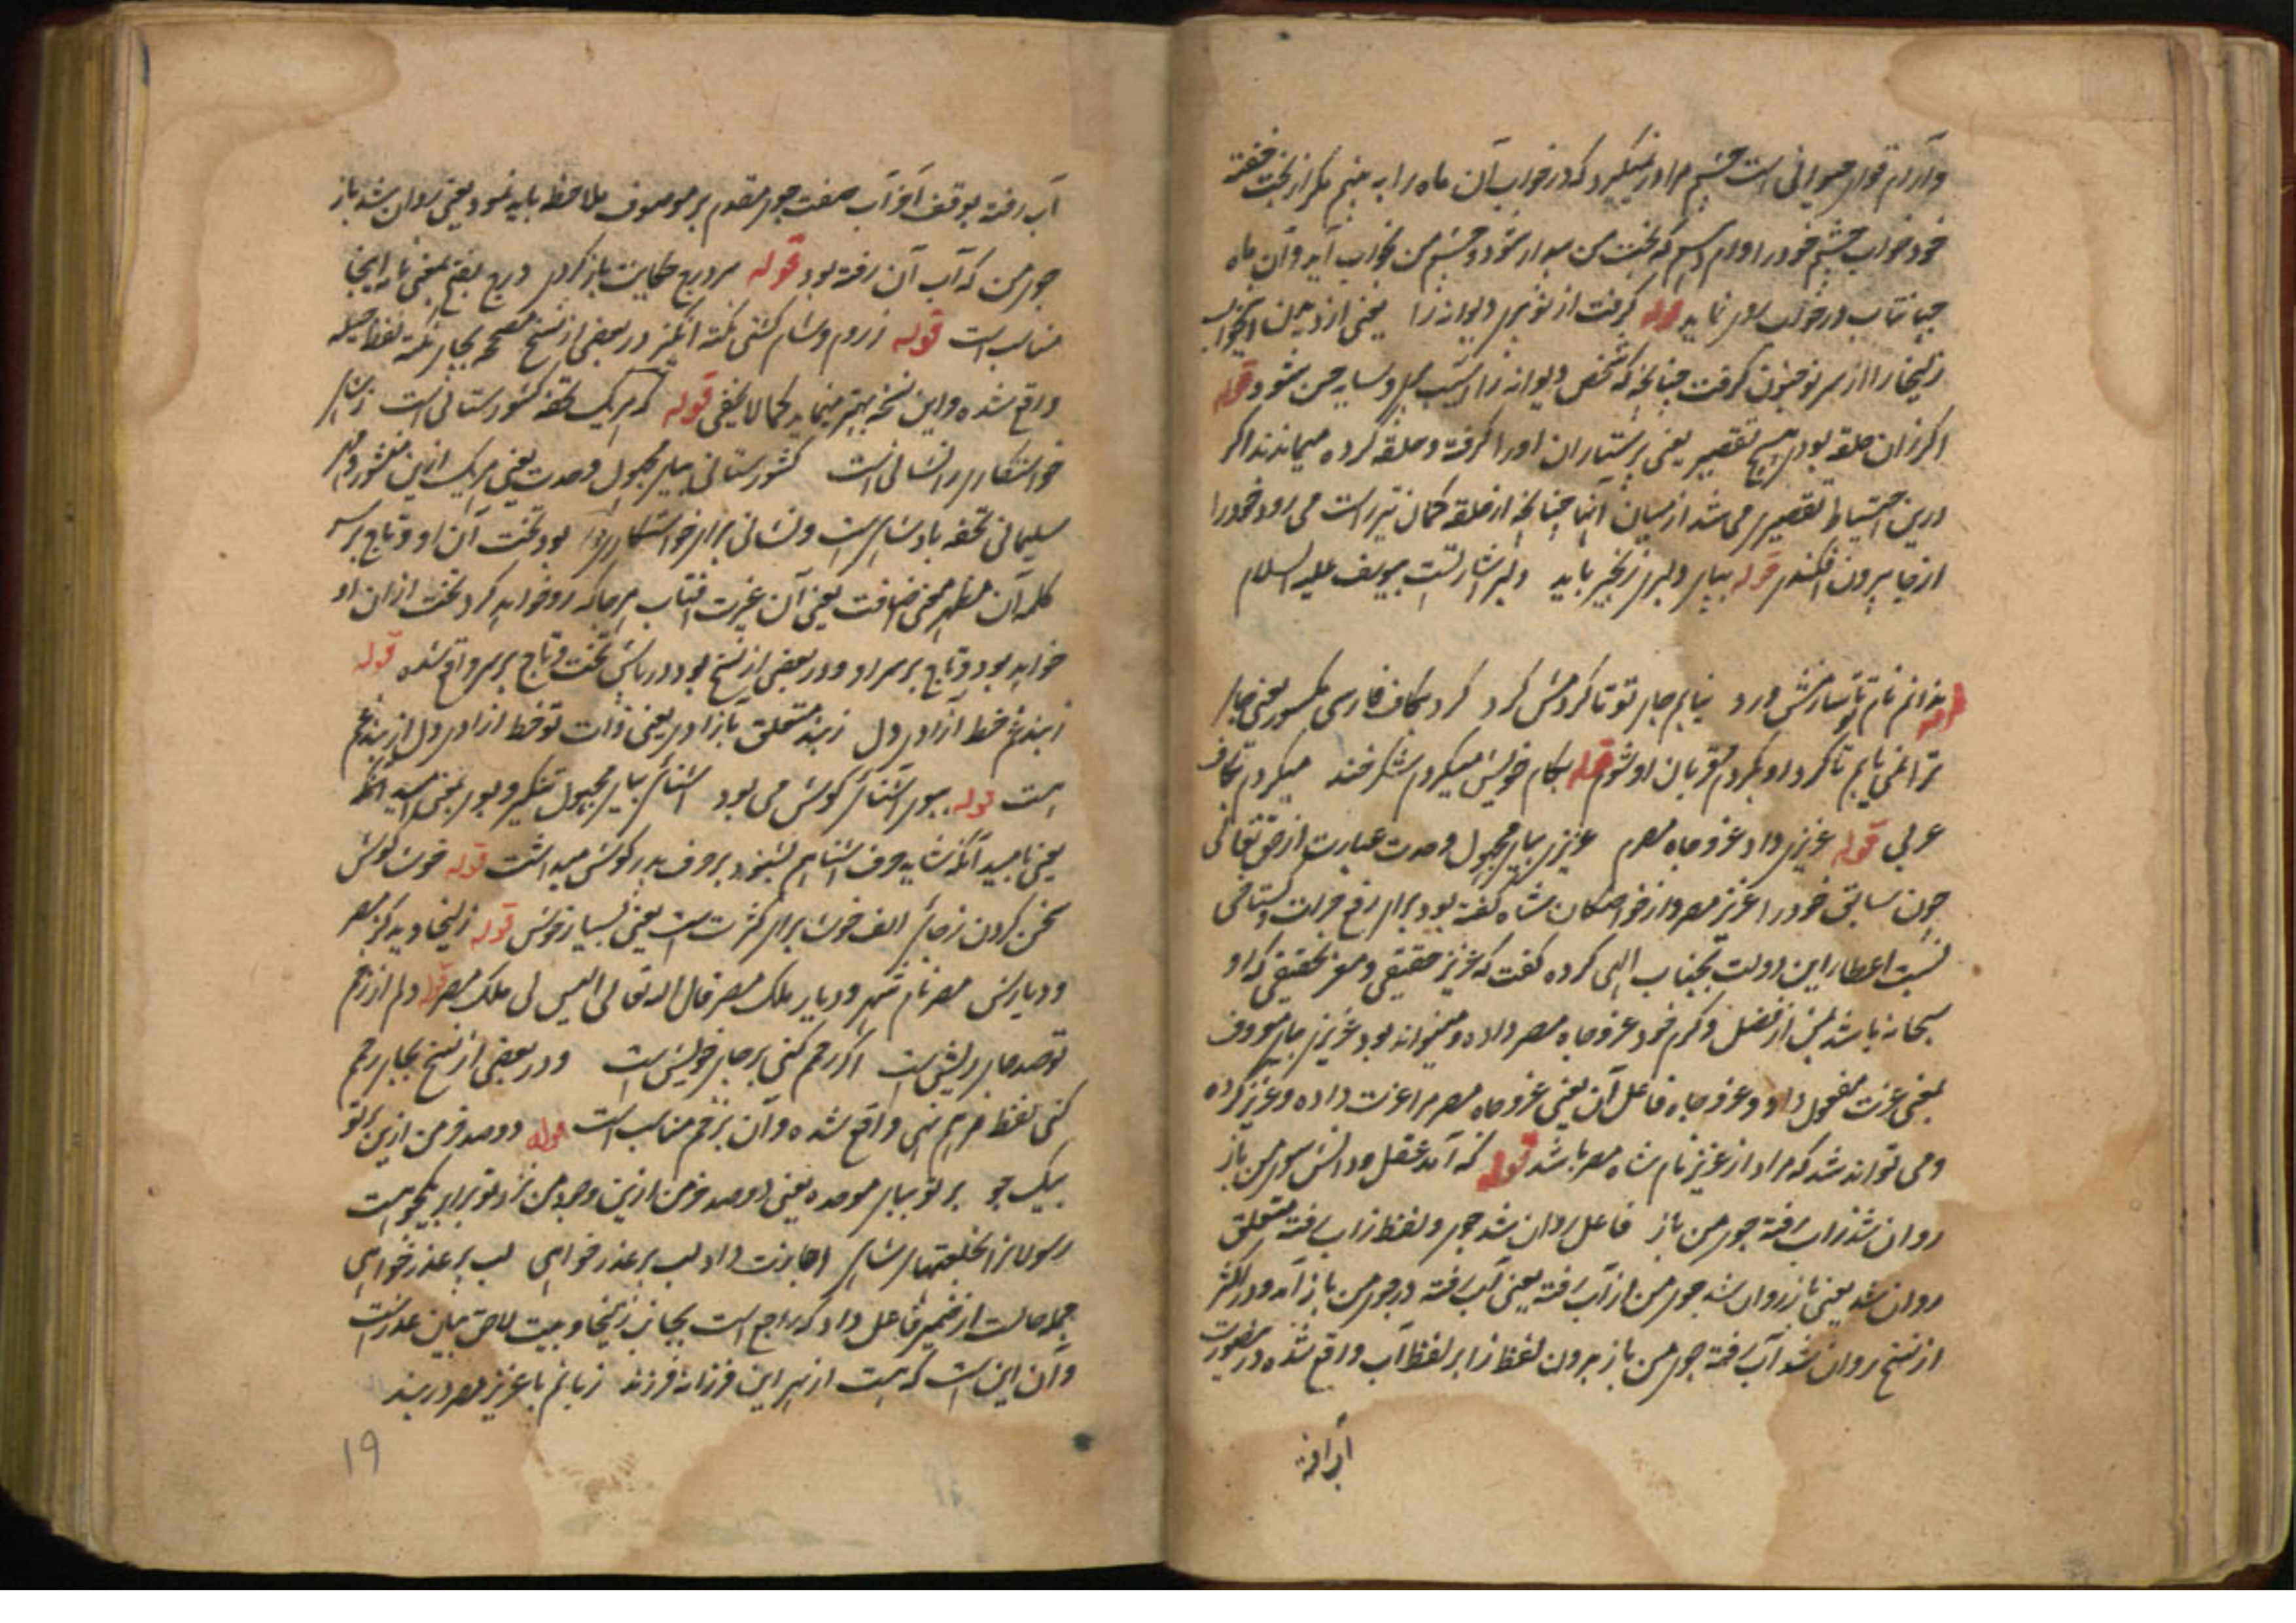 وآرام قرار حیوانی است چشم مرا در نمیگیرد که در خواب آن ماه را به بینم مگر از بخت خفته
خود خواب چشم خود را وام که بخت من بیدار شود و چشم من بخواب آید و آن ماه
در خواب نماید قوله گرفت از نو پری دیوانه را یعنی از دیدن
زلیخا را از سر نو جنون گرفت چنانچه که شخص دیوانه را شود قوله
اگر زان حلقه بودی هیچ تقصیر یعنی پرستاران او را گرفته و حلقه کرده میماندند اگر
درین احتیاط تقصیری می شد از میان آنها چنانچه از حلقه کمان تیر راست می رود خود را
از جا بیرون افکندی قوله بپای دلبر زنجیر باید دلبر اشارتست بیوسف علیه السلام
قوله ندانم نام تو تا سازمش ورد نیابم جای تو تا گردمش گرد گرد بکاف فارسی مکسور یعنی جای
ترا نمی یابم تا گرد او بگردم و قربان او شوم قوله بکام خویش میکردم شکر خند میکردم بکاف
عربی قوله عزیزی داد عز و جاه مصرم عزیزی بیای مجهول وحدت عبارت از حق تعالی
چون سابق خود را عزیز مصر و از خواصگان شاه گفته بود برای رفع جرات گستاخی
نسبت اعطای این دولت بجناب الهی کرده گفت که عزیز حقیقی و معز تحقیقی که او
سبحانه باشد از فضل و کرم خود عز و جاه مصر داده و میتواند بود عزیزی بیای معروف
بمعنی عزت مفعول داد و عز و جاه فاعل آن یعنی عز و جاه مصر مرا عزت داده و عزیز کرده
و می تواند شد که مراد از عزیز نام شاه مصر باشد قوله که آمد عقل و دانش سوی من باز
روان شد زاب رفته جوی من باز فاعل روان شد جوی و لفظ زاب رفته متعلق
روان شد یعنی باز روان شد جوی من از آب رفته یعنی آب رفته در جوی من باز آمد و در اکثر
از نسخ روان شد آب رفته جوی من باز بدون لفظ زا بر لفظ آب واقع شده درینصورت
آب رفته
آب رفته بوقف آخر آب صفت جوی مقدم بر موصوف ملاحظه باید نمود یعنی روان شد باز
جوی من که آب آن رفته بود قوله ز درج حکایت باز کردی درج بفتح بمعنی نامه اینجا
مناسب است قوله ز روم و شام گشتی نکته انگیز در بعضی از نسخ صحیحه بجای نکته لفظ
واقع شده و این نسخه بهتر مینماید کما لا یخفی قوله که هر یک تحفه کشورستانی است ز شاهی
خواستگاری را نشانی است کشورستانی بیای مجهول وحدت یعنی هر یک ازین منشور و مهر
سلیمانی تحفه بادشاهی است و نشانی برای خواستگاری قوله بود تخت آن او و تاج بر سر
کلمه آن مظهر معنی اضافت یعنی آن غیرت آفتاب هر جا که رو خواهد کرد تخت ازان او
خواهد بود و تاج بر سر او و در بعضی از نسخ بود در پاش تخت و تاج بر سر واقع شده قوله
ز بند غم خط آزادی دل ز بند متعلق بآزادی یعنی ذات تو خط آزادی دل از بند غم
است قوله ببوی آشنائی گوش می بود آشنائی بیای مجهول تنکیر و بوی بمعنی امید آنکه
یعنی بامید آنکه شاید حرف آشنا هم بشنود بر حرف پدر گوش میداشت قوله خوشا گوش
سخن کردن ز جائی الف خوشا برای کثرت است یعنی بسیار خوش قوله زلیخا دید کز مصر
و دیارش مصر نام شهر و دیار ملک مصر قال الله تعالی الیس لی ملک مصر قوله دلم از زخم
تو صد جای ریش است اگر رحم کنی بر جای خویش است و در بعضی از نسخ بجای رحم
کنی لفظ مرهم نهی واقع شده و آن بزخم مناسب است قوله دو صد خرمن ازین بر تو
بیک جو بر تو ببای موحده یعنی دو صد خرمن ازین وجود من نزد تو برابر یکجو است
رسولان را بخلعتهای شاهی اجازت داد لب پر عذر خواهی لب پر عذر خواهی
جمله حالت از ضمیر فاعل داد که راجع است بجانب زلیخا و بیت لاحق بیان عذر است
و آن این است که هست از بهر این فرزانه فرزند زبانم با عزیز مصر در بند
۱۹